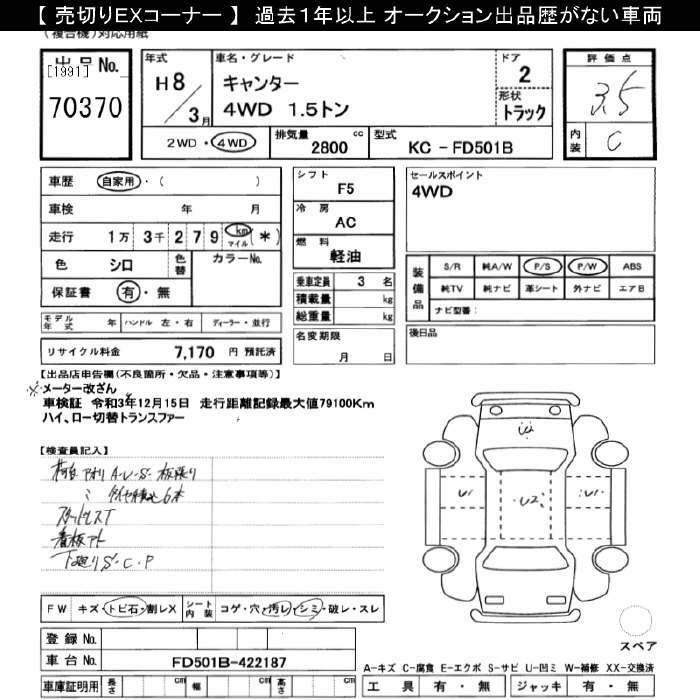 【 売切りEXコーナー 】 過去1年以上 オークション出品歴がない車両
(複合機)対応用紙
出品No.
[1991]
70370
年式
H8/3月
車名・グレード
キャンター
4WD 1.5トン
ドア
2
形状
トラック
評価点
3.5
内装
C
2WD・4WD
排気量
2800 cc
型式
KC - FD501B
車歴 自家用・( )
車検 年 月
走行 1万 3千 2 7 9 km マイル (*)
色 シロ 色替 カラーNo.
保証書 有・無
モデル年式 年 ハンドル 左・右 ディーラー・並行
リサイクル料金 7,170 円 預託済
シフト
F5
冷房
AC
燃料
軽油
乗車定員 3 名
積載量 kg
総重量 kg
名変期限
月 日
セールスポイント
4WD
装備品
S/R 純A/W P/S P/W ABS
純TV 純ナビ 革シート 外ナビ エアB
ナビ型番:
後日品
【出品店申告欄(不良箇所・欠品・注意事項等)】
※メーター改ざん
車検証 令和3年12月15日 走行距離記録最大値79100Km
ハイ、ロー切替トランスファー
【検査員記入】
荷台アオリ A・U・S・板張り
スタッドレスT
看板アト
下廻りS・C・P
U1 U2 U1
FW キズ・トビ石・割レX シート内装 コゲ・穴・汚レ・シミ・破レ・スレ
登録No.
車台No. FD501B-422187
車庫証明用 長さ cm 幅 cm 高さ cm
スペア
A-キズ C-腐食 E-エクボ S-サビ U-凹ミ W-補修 XX-交換済
工具 有・無 ジャッキ 有・無